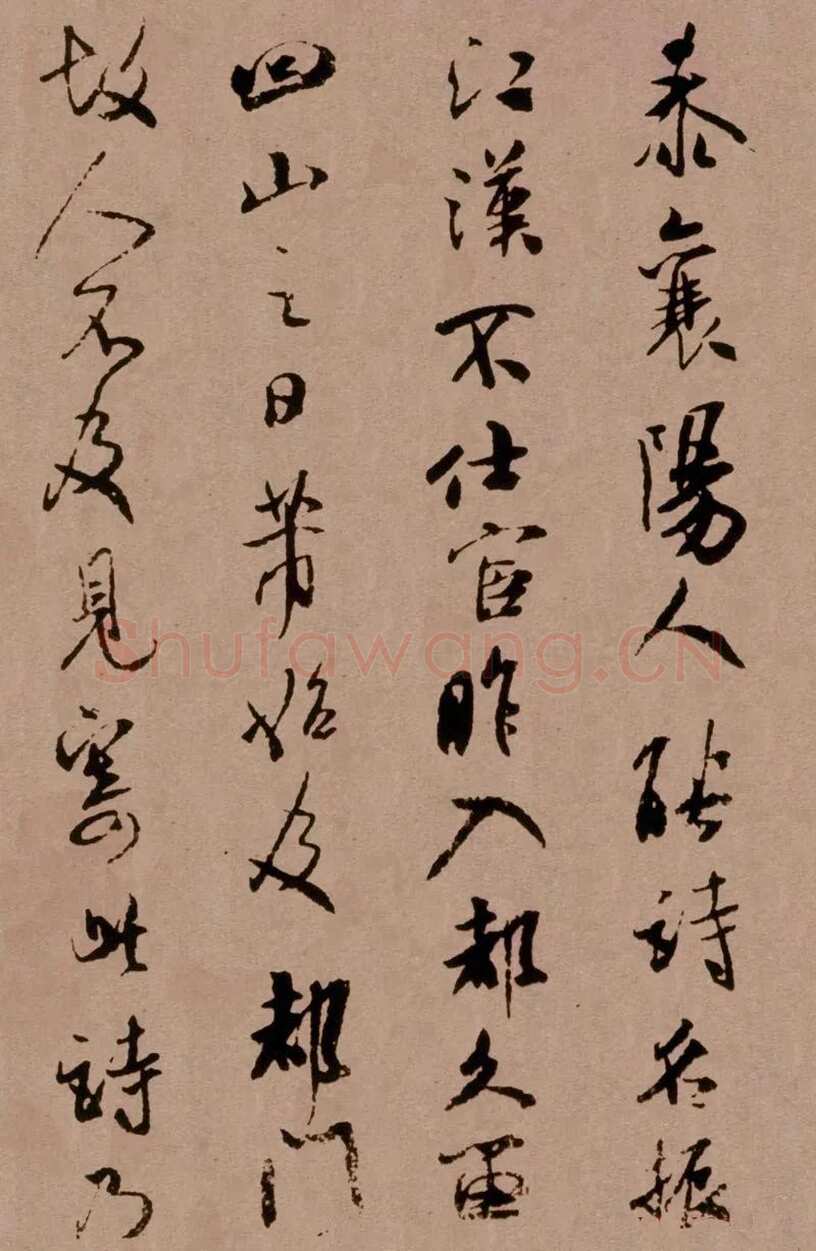 泰襄陽人能詩名振
江漢不仕宦昨入都久留
回山之日芾始及都門
故人不及見寄此詩乃
Shufawang.CN